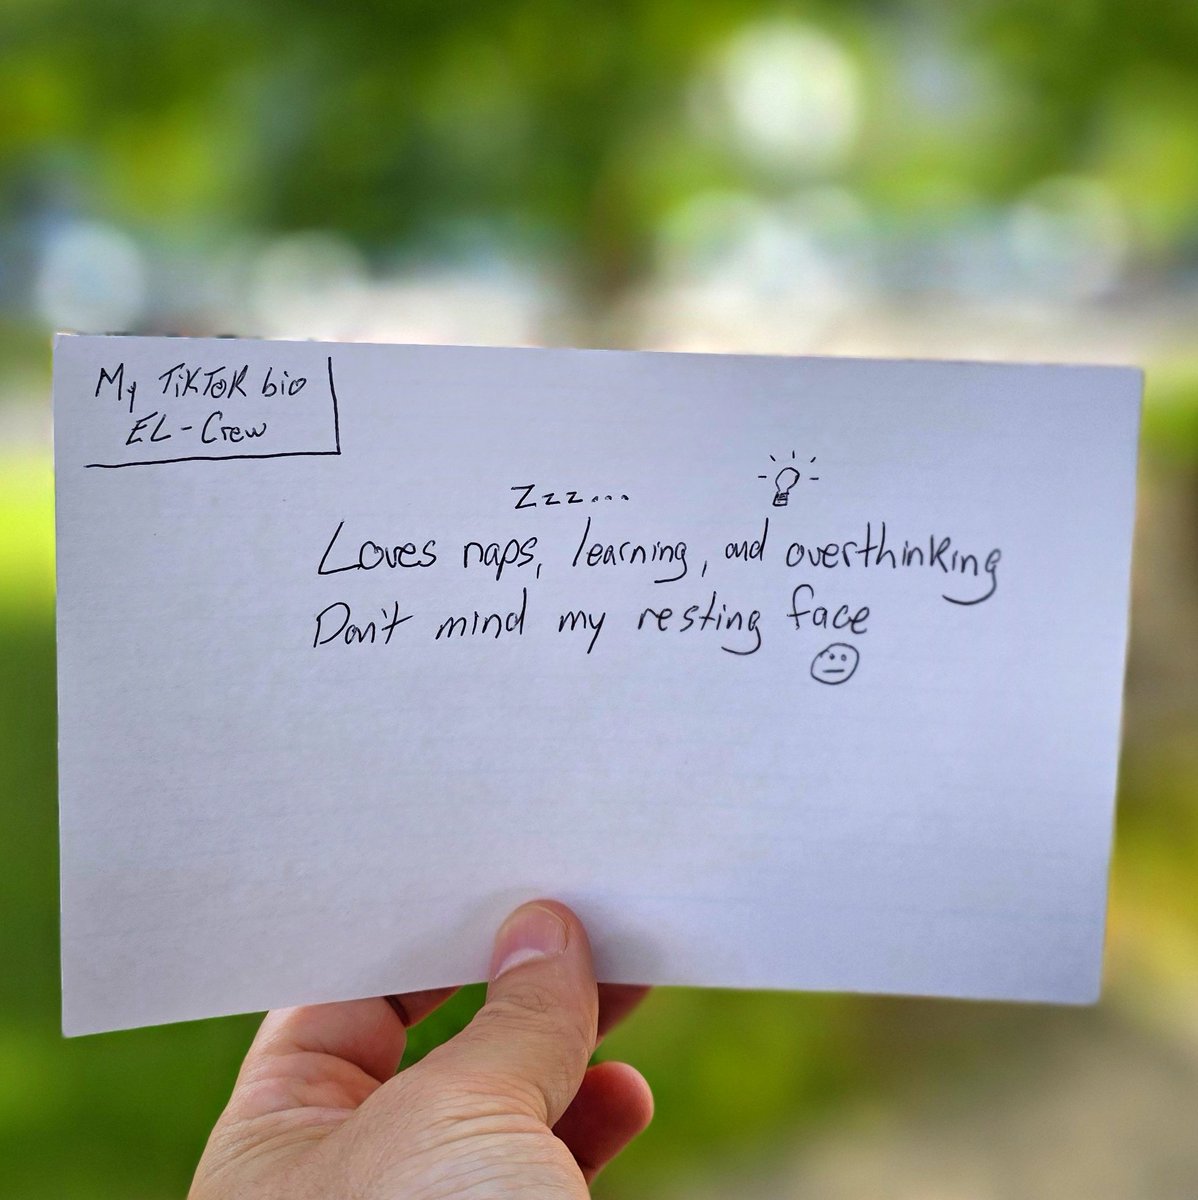 My TikTok bio
EL-Crew
Zzz...
Loves naps, learning, and overthinking
Don't mind my resting face